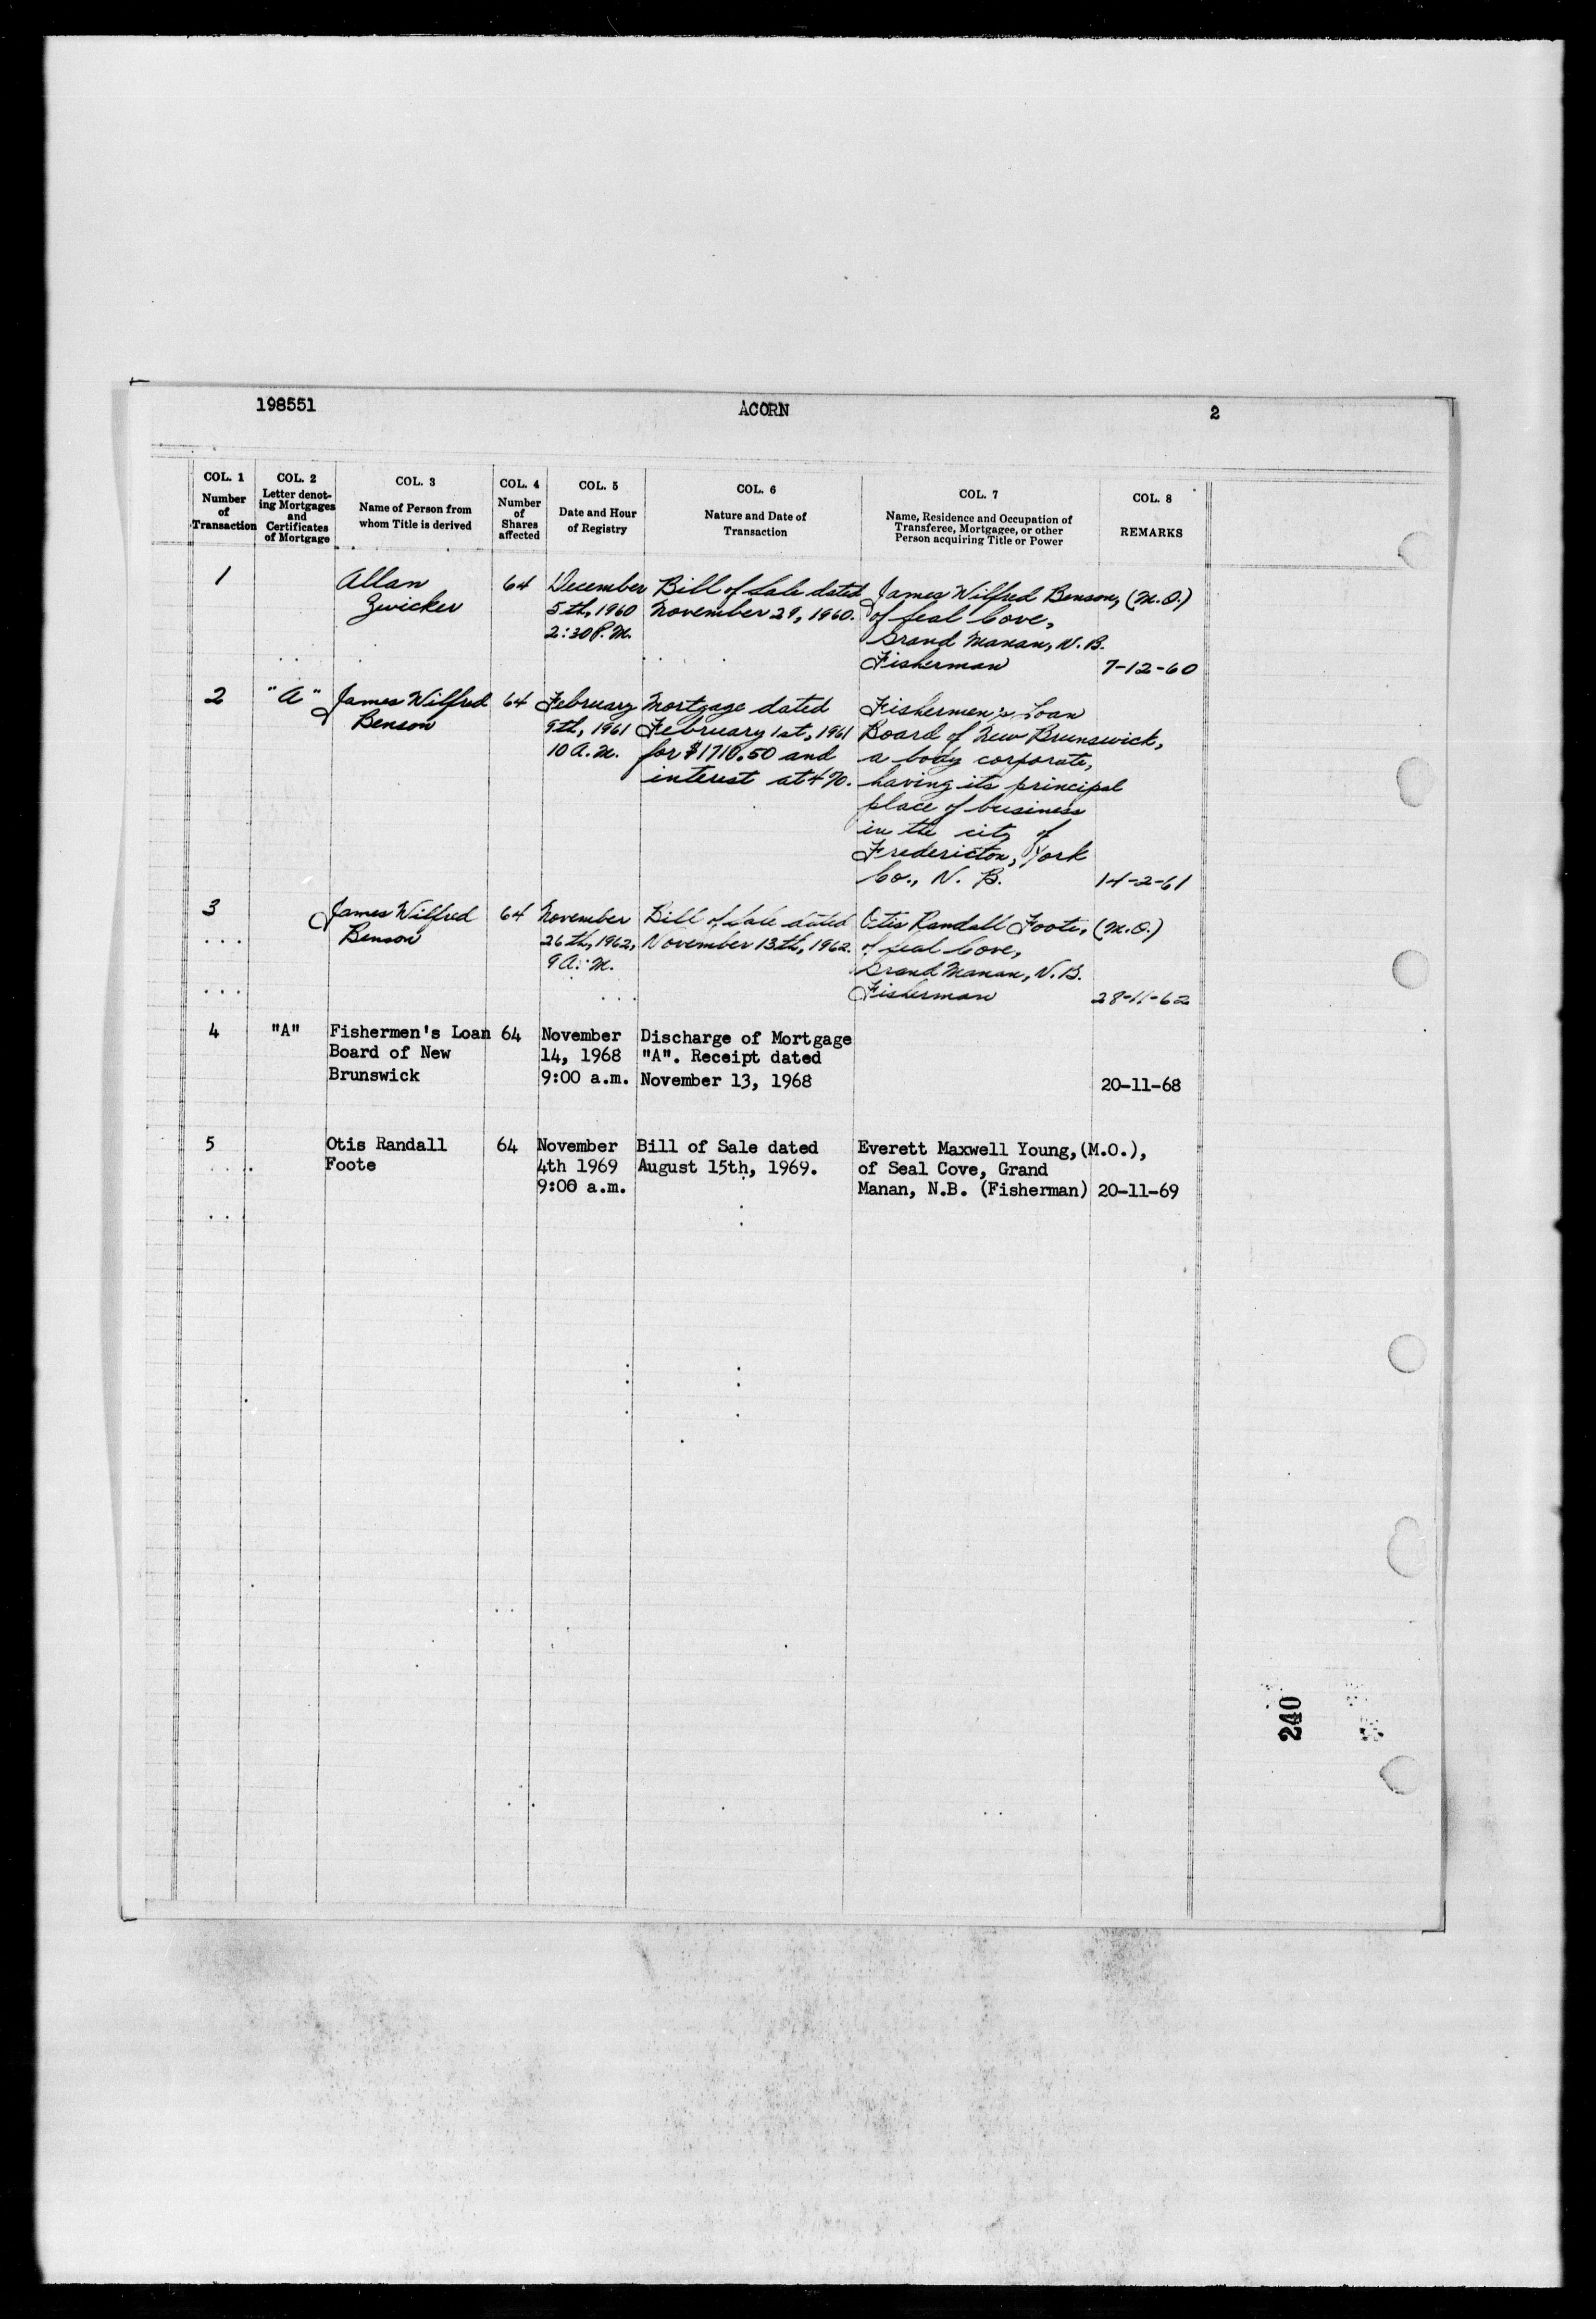 198551 ACORN 2
COL. 1 COL. 2 COL. 3 COL. 4 COL. 5 COL. 6 COL. 7 COL. 8
Number of Transaction
Letter denoting Mortgages and Certificates of Mortgage
Name of Person from whom Title is derived
Number of Shares affected
Date and Hour of Registry
Nature and Date of Transaction
Name, Residence and Occupation of Transferee, Mortgagee, or other Person acquiring Title or Power
REMARKS
1 Allan 64 December Bill of Sale dated James Wilfred Benson, (M.O.)
Zwicker 5th, 1960 November 29, 1960. of Seal Cove,
2:30 P.M. Grand Manan, N.B.
Fisherman 7-12-60
2 "A" James Wilfred 64 February Mortgage dated Fishermen's Loan
Benson 9th, 1961 February 1st, 1961 Board of New Brunswick,
10 A.M. for $1710.50 and a body corporate,
interest at 4%. having its principal
place of business
in the city of
Fredericton, York
Co., N. B. 14-2-61
3 James Wilfred 64 November Bill of Sale dated Otis Randall Foote, (M.O.)
Benson 26th, 1962, November 13th, 1962. of Seal Cove,
9 A.M. Grand Manan, N.B.
Fisherman 28-11-62
4 "A" Fishermen's Loan 64 November Discharge of Mortgage
Board of New 14, 1968 "A". Receipt dated
Brunswick 9:00 a.m. November 13, 1968 20-11-68
5 Otis Randall 64 November Bill of Sale dated Everett Maxwell Young, (M.O.),
Foote 4th 1969 August 15th, 1969. of Seal Cove, Grand
9:00 a.m. Manan, N.B. (Fisherman) 20-11-69
240